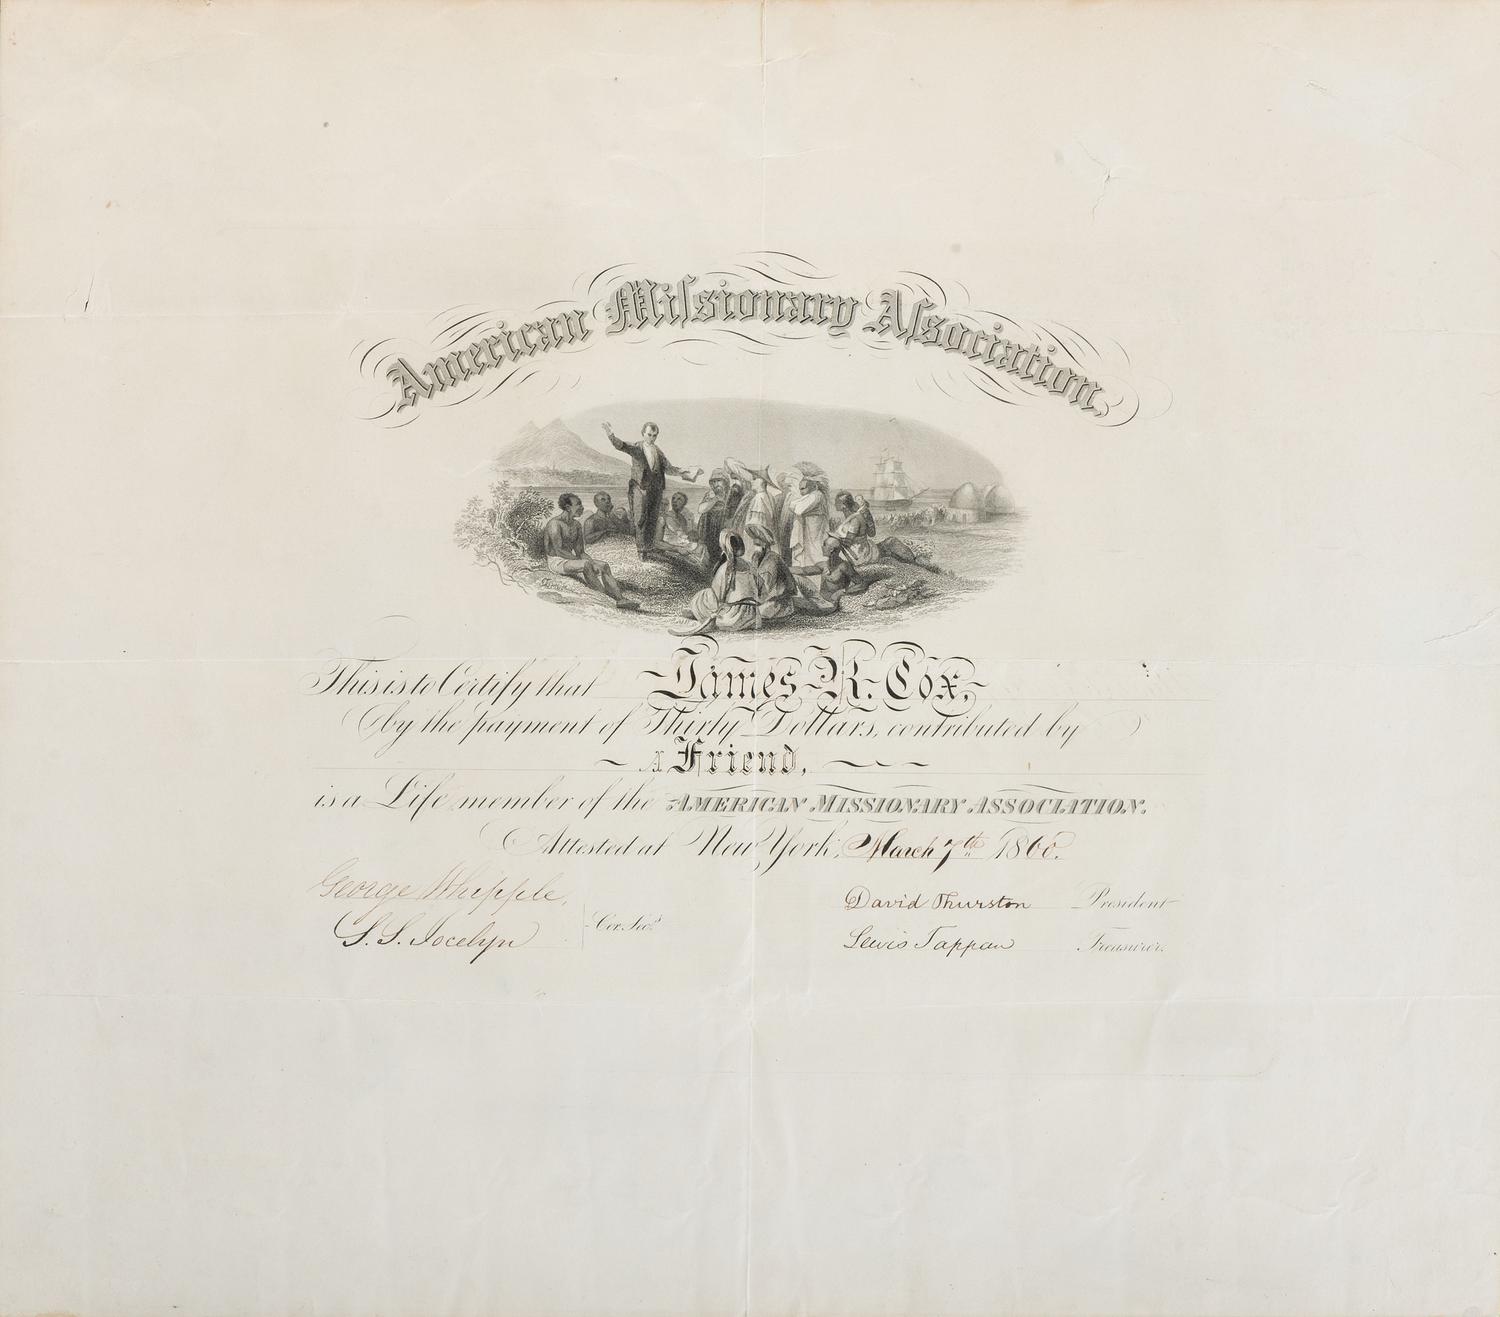 American Miſsionary Aſsociation.
This is to Certify that James R. Cox,
by the payment of Thirty Dollars, contributed by
A Friend,
is a Life member of the AMERICAN MISSIONARY ASSOCIATION.
Attested at New York, March 7th 1860.
George Whipple,
S. S. Jocelyn
Cor. Secs
David Thurston President
Lewis Tappan Treasurer.